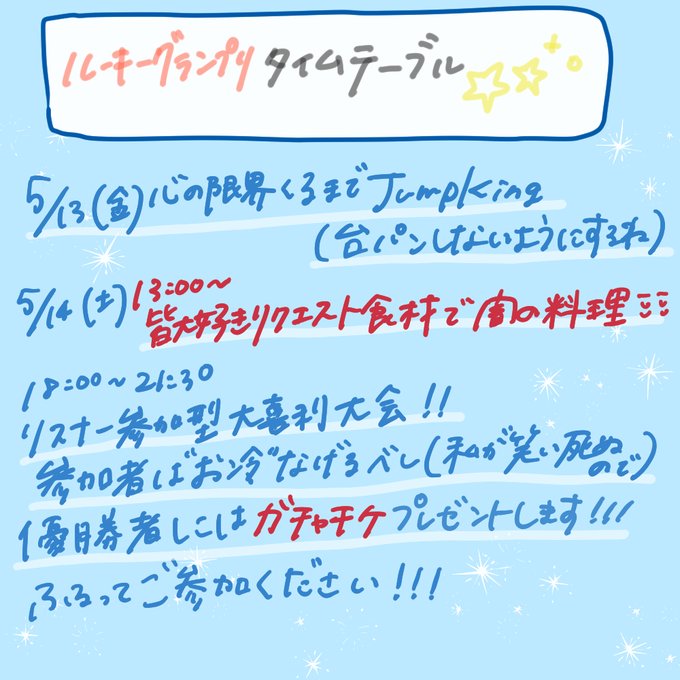 ルーキーグランプリ タイムテーブル
5/13(金)心の限界くるまでJumpKing
(台パンしないようにするね)
5/14(土)13:00～
皆大好きリクエスト食材で闇の料理
18:00～21:30
リスナー参加型大喜利大会!!
参加者はお冷なげるべし(私が笑い死ぬ
ので)
優勝者にはガチャモケプレゼントします!!!
ふるってご参加ください!!!